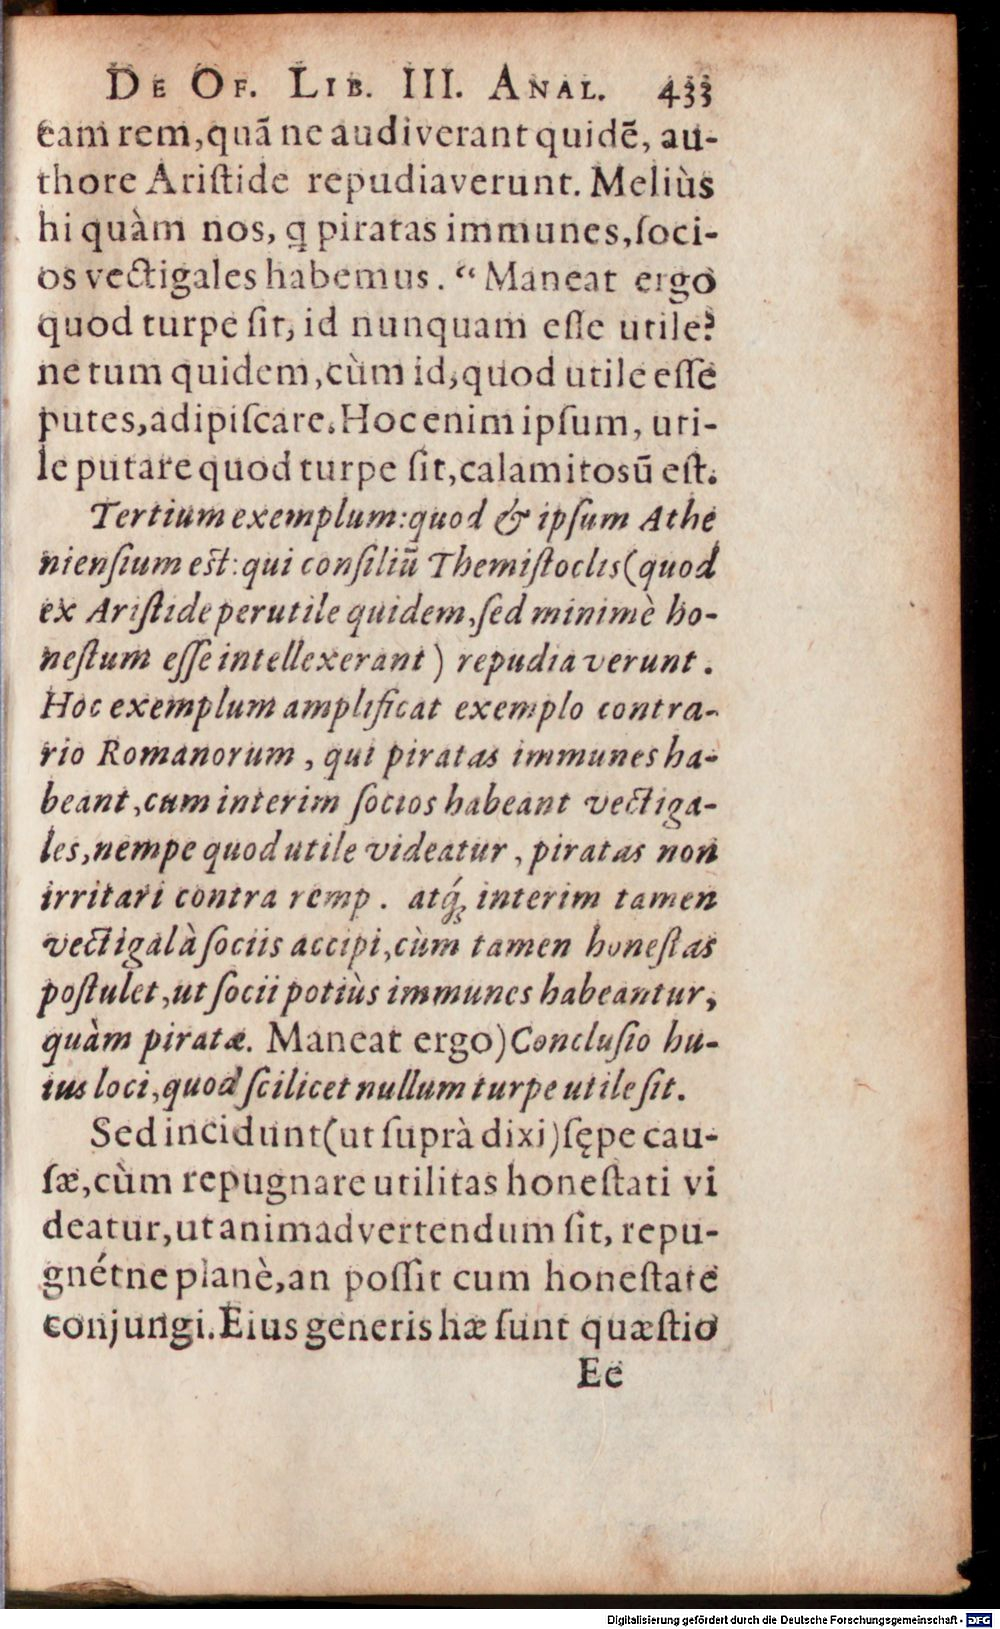 De Of. Lib. III. Anal. 433
eam rem, quã ne audiverant quidẽ, au-
thore Ariſtide repudiaverunt. Meliùs
hi quàm nos, q piratas immunes, ſoci-
os vectigales habemus. “ Maneat ergo
quod turpe ſit, id nunquam eſſe utile?
ne tum quidem, cùm id, quod utile eſſe
putes, adipiſcare. Hoc enim ipſum, uti-
le putare quod turpe ſit, calamitosũ eſt.
Tertium exemplum: quod & ipſum Athe
nienſium eſt: qui conſiliũ Themiſtoclis (quod
ex Ariſtide perutile quidem, ſed minimè ho-
neſtum eſſe intellexerant) repudiaverunt.
Hoc exemplum amplificat exemplo contra-
rio Romanorum, qui piratas immunes ha-
beant, cum interim ſocios habeant vectiga-
les, nempe quod utile videatur, piratas non
irritari contra remp. atq́ꝫ interim tamen
vectigal à ſociis accipi, cùm tamen honeſtas
poſtulet, ut ſocii potiùs immunes habeantur,
quàm piratæ. Maneat ergo) Concluſio hu-
ius loci, quod ſcilicet nullum turpe utile ſit.
Sed incidunt (ut ſuprà dixi) ſępe cau-
ſæ, cùm repugnare utilitas honeſtati vi
deatur, ut animadvertendum ſit, repu-
gnétne planè, an poſſit cum honeſtate
conjungi. Eius generis hæ ſunt quæſtio
Ee
Digitalisierung gefördert durch die Deutsche Forschungsgemeinschaft - DFG